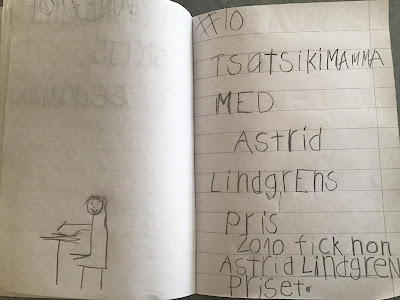 #10
TSATSIKIMAMMA
MED
Astrid
LindgrEns
Pris
2010 fick hon
Astrid LindgrEN
Priset.